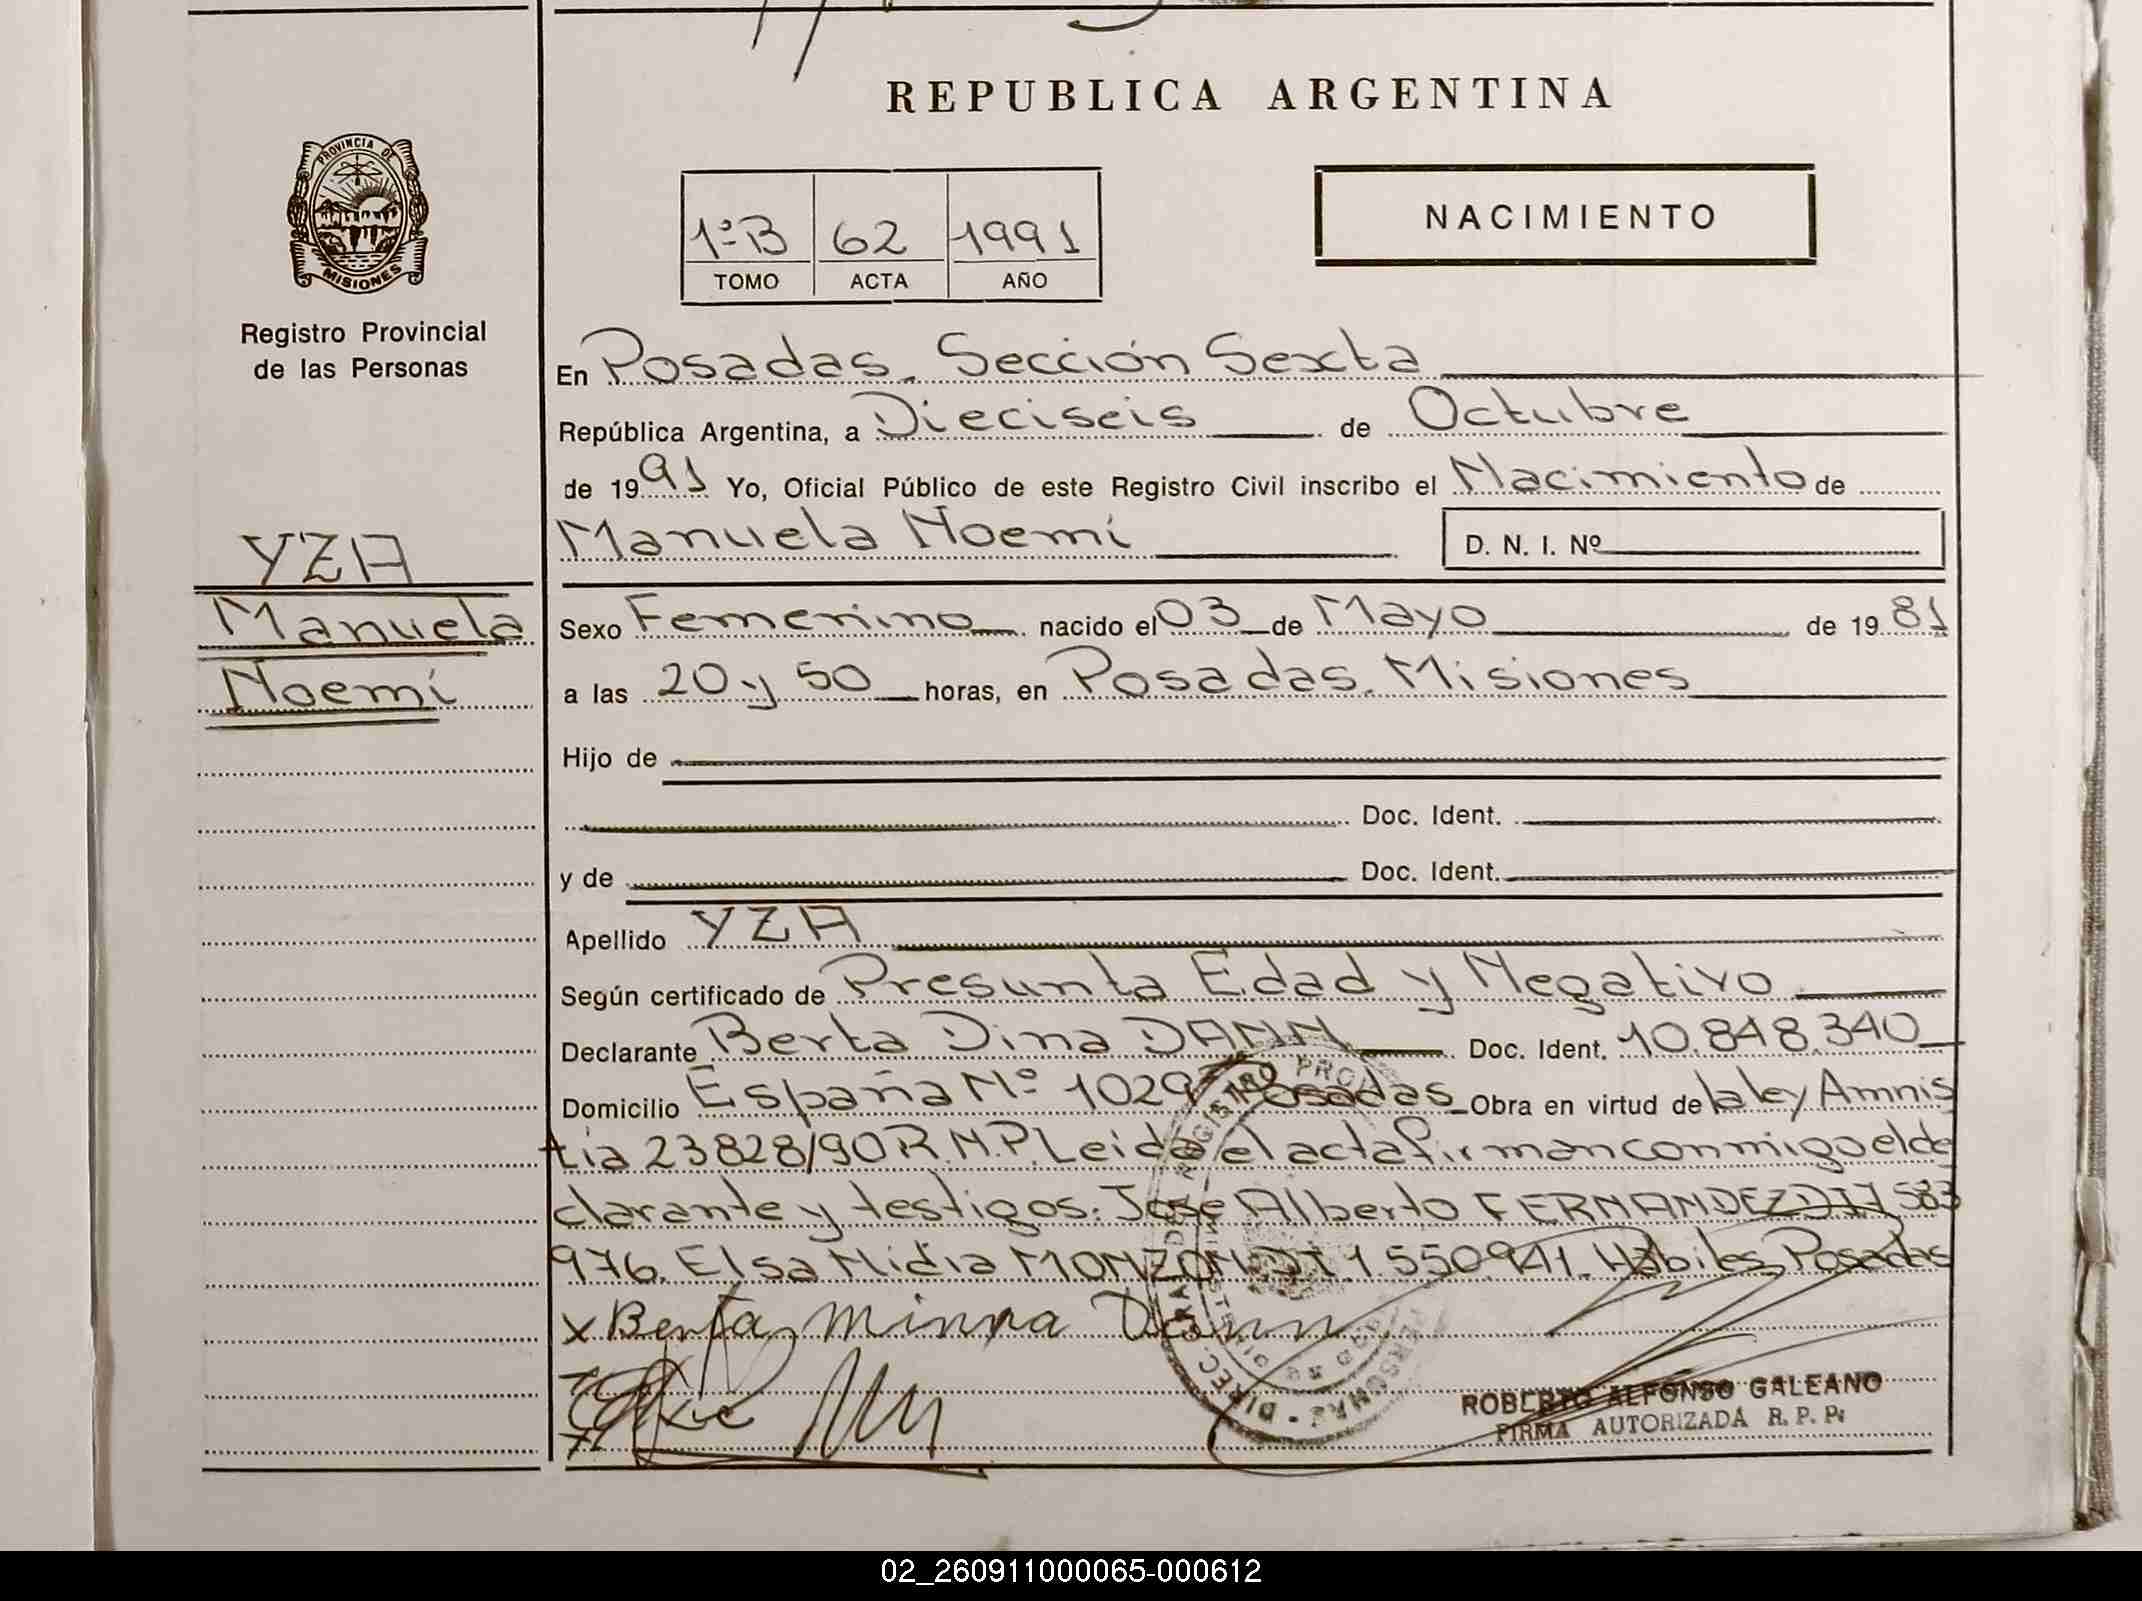 REPUBLICA ARGENTINA
PROVINCIA DE
MISIONES
Registro Provincial
de las Personas
1ºB 62 1991
TOMO ACTA AÑO
NACIMIENTO
En Posadas. Sección Sexta
República Argentina, a Dieciseis de Octubre
de 1991 Yo, Oficial Público de este Registro Civil inscribo el Nacimiento de
YZA
Manuela
Noemí
Manuela Noemí D. N. I. Nº
Sexo Femenino nacido el 03 de Mayo de 1981
a las 20 y 50 horas, en Posadas. Misiones
Hijo de
Doc. Ident.
y de Doc. Ident.
Apellido YZA
Según certificado de Presunta Edad y Negativo
Declarante Berta Dina DANN Doc. Ident. 10.848.340
Domicilio España Nº 1029 Posadas Obra en virtud de la ley Amnis
tia 23828/90 R.N.P. Leida el acta firman conmigo el de
clarante y testigos: Jose Alberto FERNANDEZ 583
976. Elsa Nidia MONZON DI 1.550.941. Hábiles Posadas
x Berta Dann
ROBERTO ALFONSO GALEANO
FIRMA AUTORIZADA R. P. P.
02_260911000065-000612